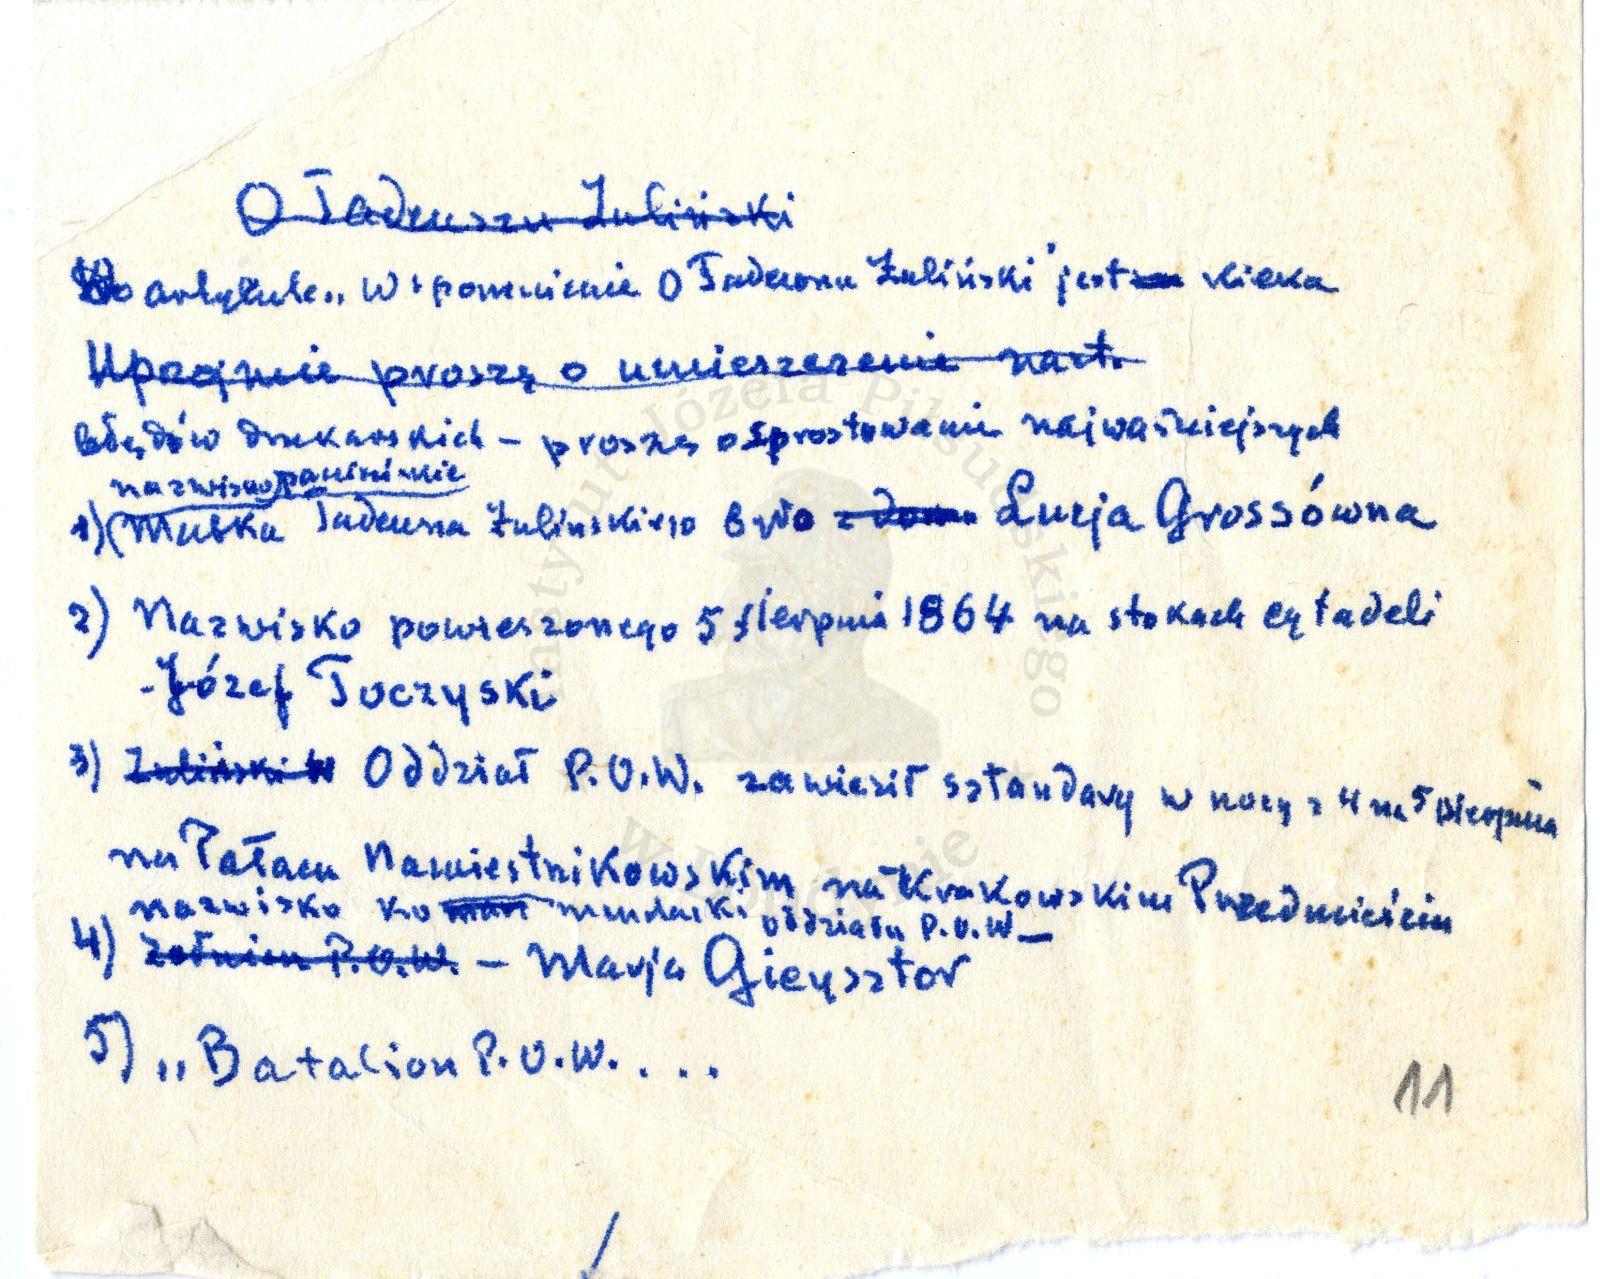 O Tadeuszu Żuliński
W artykule „Wspomnienie O Tadeuszu Żuliński" jest kilka
Uprzejmie proszę o umieszczenie nast.
błędów drukarskich – proszę o sprostowanie najważniejszych
nazwisko panieńskie
1) (Matka Tadeusza Żulińskiego było z domu Łucja Grossówna
2) Nazwisko powieszonego 5 sierpnia 1864 na stokach cytadeli
- Józef Toczyski
3) Żuliński W Oddział P.O.W. zawiesił sztandary w nocy z 4 na 5 sierpnia
na Pałacu Namiestnikowskim na Krakowskim Przedmieściu
nazwisko komendantki oddziału P.O.W –
4) żołnierz P.O.W. – Marja Gieysztor
5) „Batalion P.O.W. . . .
11
Instytut Józefa Piłsudskiego
w Londynie